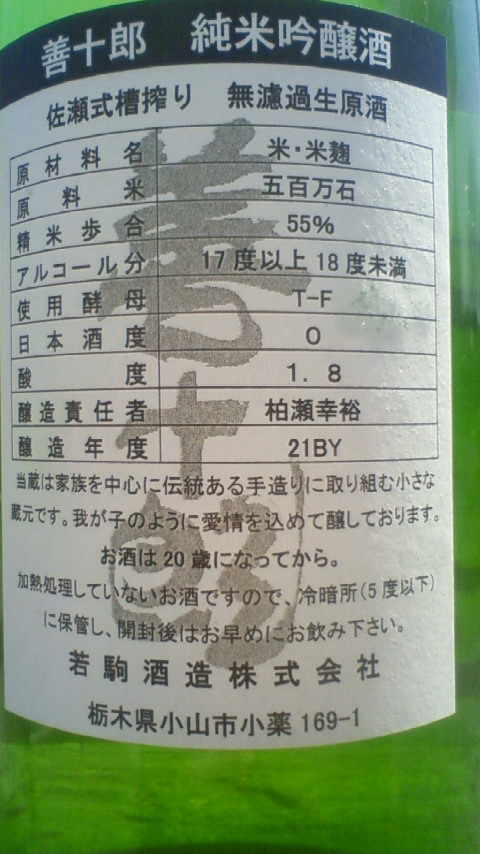 善十郎 純米吟醸酒
佐瀬式槽搾り 無濾過生原酒
原材料名 米・米麹
原料米 五百万石
精米歩合 55%
アルコール分 17度以上18度未満
使用酵母 T-F
日本酒度 0
酸度 1.8
醸造責任者 柏瀬幸裕
醸造年度 21BY
当蔵は家族を中心に伝統ある手造りに取り組む小さな
蔵元です。我が子のように愛情を込めて醸しております。
お酒は20歳になってから。
加熱処理していないお酒ですので、冷暗所(5度以下)
に保管し、開封後はお早めにお飲み下さい。
若駒酒造株式会社
栃木県小山市小薬169-1
善十郎